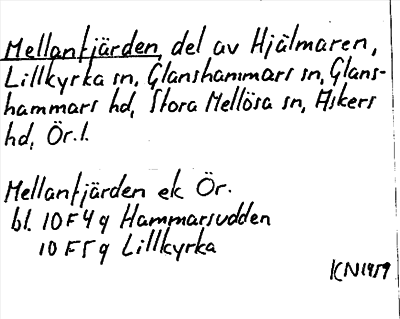 Mellanfjärden, del av Hjälmaren,
Lillkyrka sn, Glanshammars sn, Glans-
hammars hd, Stora Mellösa sn, Askers
hd, Ör. l.
Mellanfjärden ek Ör.
bl. 10F4g Hammarsudden
10F5g Lillkyrka
KN1959